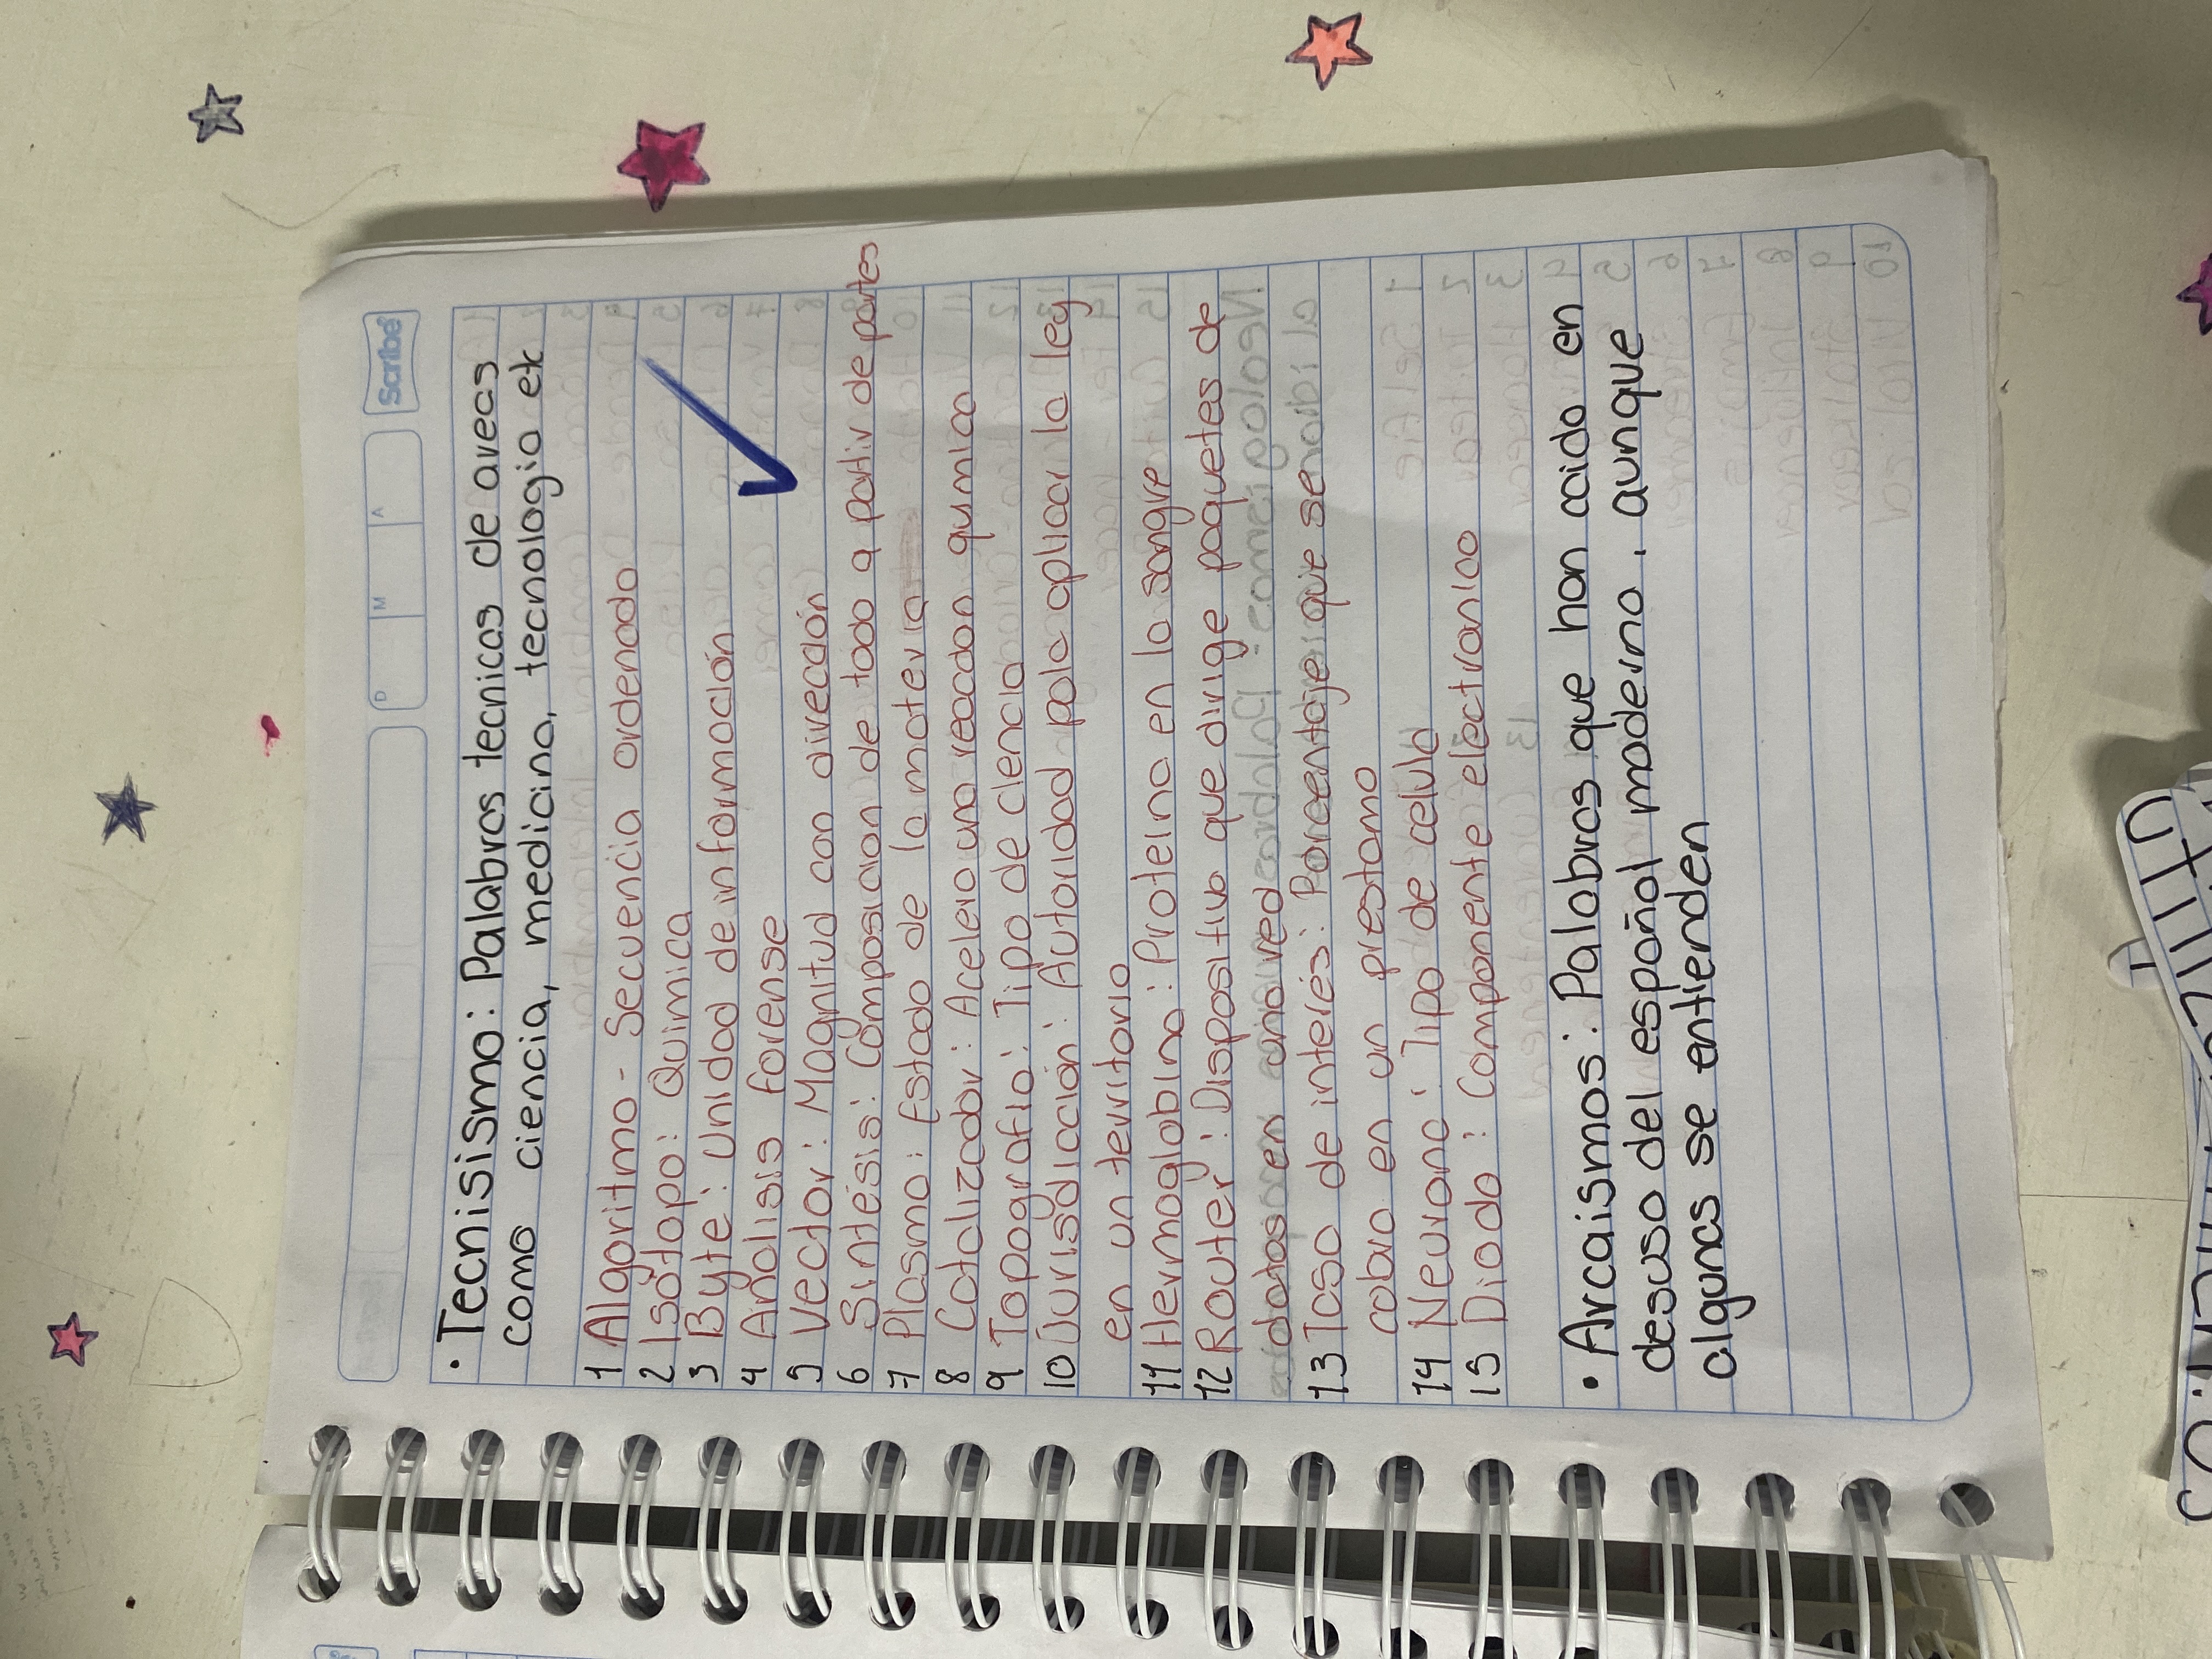 Scribe
D M A
• Tecnisismo: Palabras tecnicas de areas
como ciencia, medicina, tecnologia etc
1 Algoritmo - Secuencia ordenado
2 Isótopo: Quimica
3 Byte: Unidad de información
4 Análisis forense
5 Vector: Magnitud con dirección
6 Síntesis: Composicion de todo a partir de partes
7 Plasma: Estado de la materia
8 Catalizador: Acelera una reaccion quimica
9 Topografia: Tipo de ciencia
10 Jurisdicción: Autoridad para aplicar la ley
en un territorio
11 Hermoglobina: Proteina en la sangre
12 Router: Dispositivo que dirige paquetes de
datos en una red
13 Tasa de interés: Porcentaje que se
cobra en un prestamo
14 Neurona: Tipo de celula
15 Diodo: Componente electronico
• Arcaismos: Palabras que han caido en
desuso del español moderno, aunque
algunas se entienden